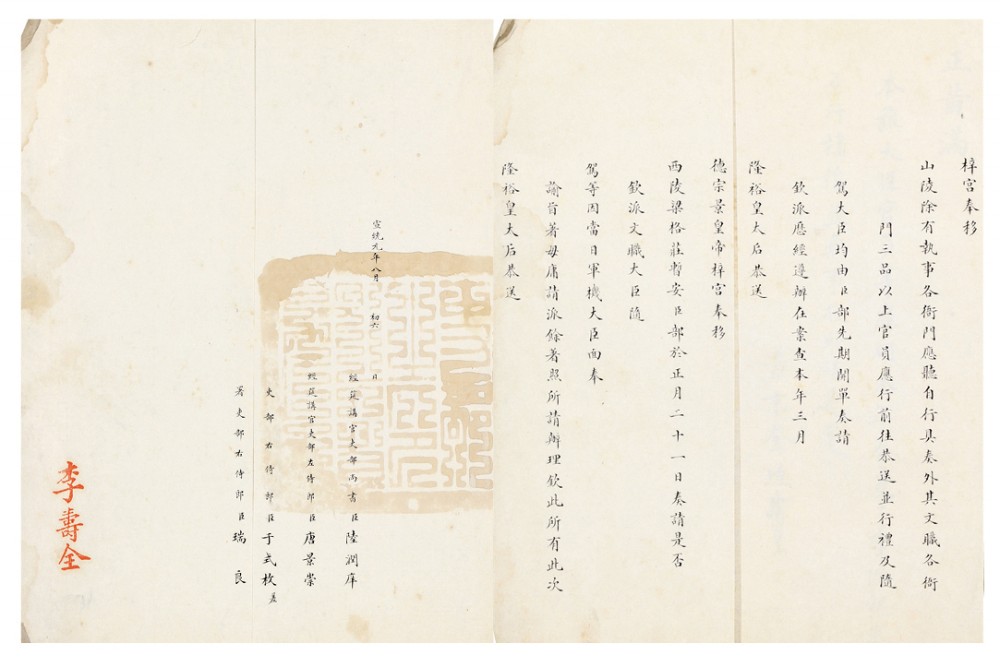 梓宮奉移
山陵除有執事各衙門應聽自行具奏外其文職各衙
門三品以上官員應行前往恭送並行禮及隨
駕大臣均由臣部先期開單奏請
欽派應經遵辦在案查本年三月
隆裕皇太后恭送
德宗景皇帝梓宮奉移
西陵梁格莊暫安臣部於正月二十一日奏請是否
欽派文職大臣隨
駕等因當日軍機大臣面奉
諭旨著毋庸請派餘著照所請辦理欽此所有此次
隆裕皇太后恭送
宣統元年八月 初六 日
經筵講官吏部尚書臣陸潤庠
經筵講官吏部左侍郎臣唐景崇
吏部右侍郎臣于式枚差
署吏部右侍郎臣瑞良
李壽全